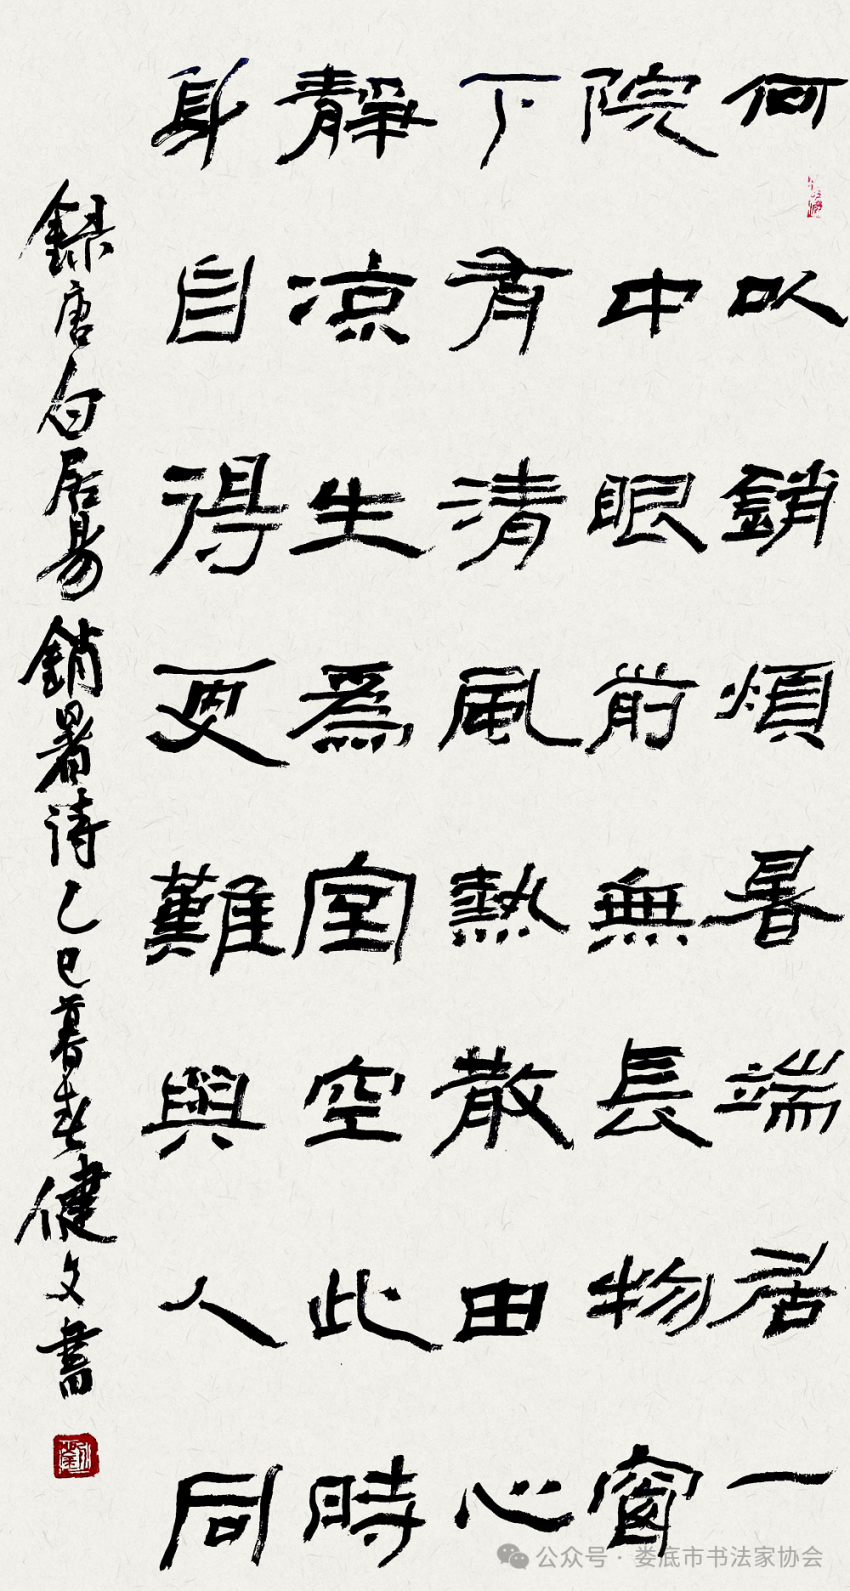 何以銷煩暑端居一
院中眼前無長物窗
下有清風熱散由心
靜凉生爲室空此時
身自得更難與人同
録唐白居易銷暑诗乙巳暮春健文書
公众号·娄底市书法家协会